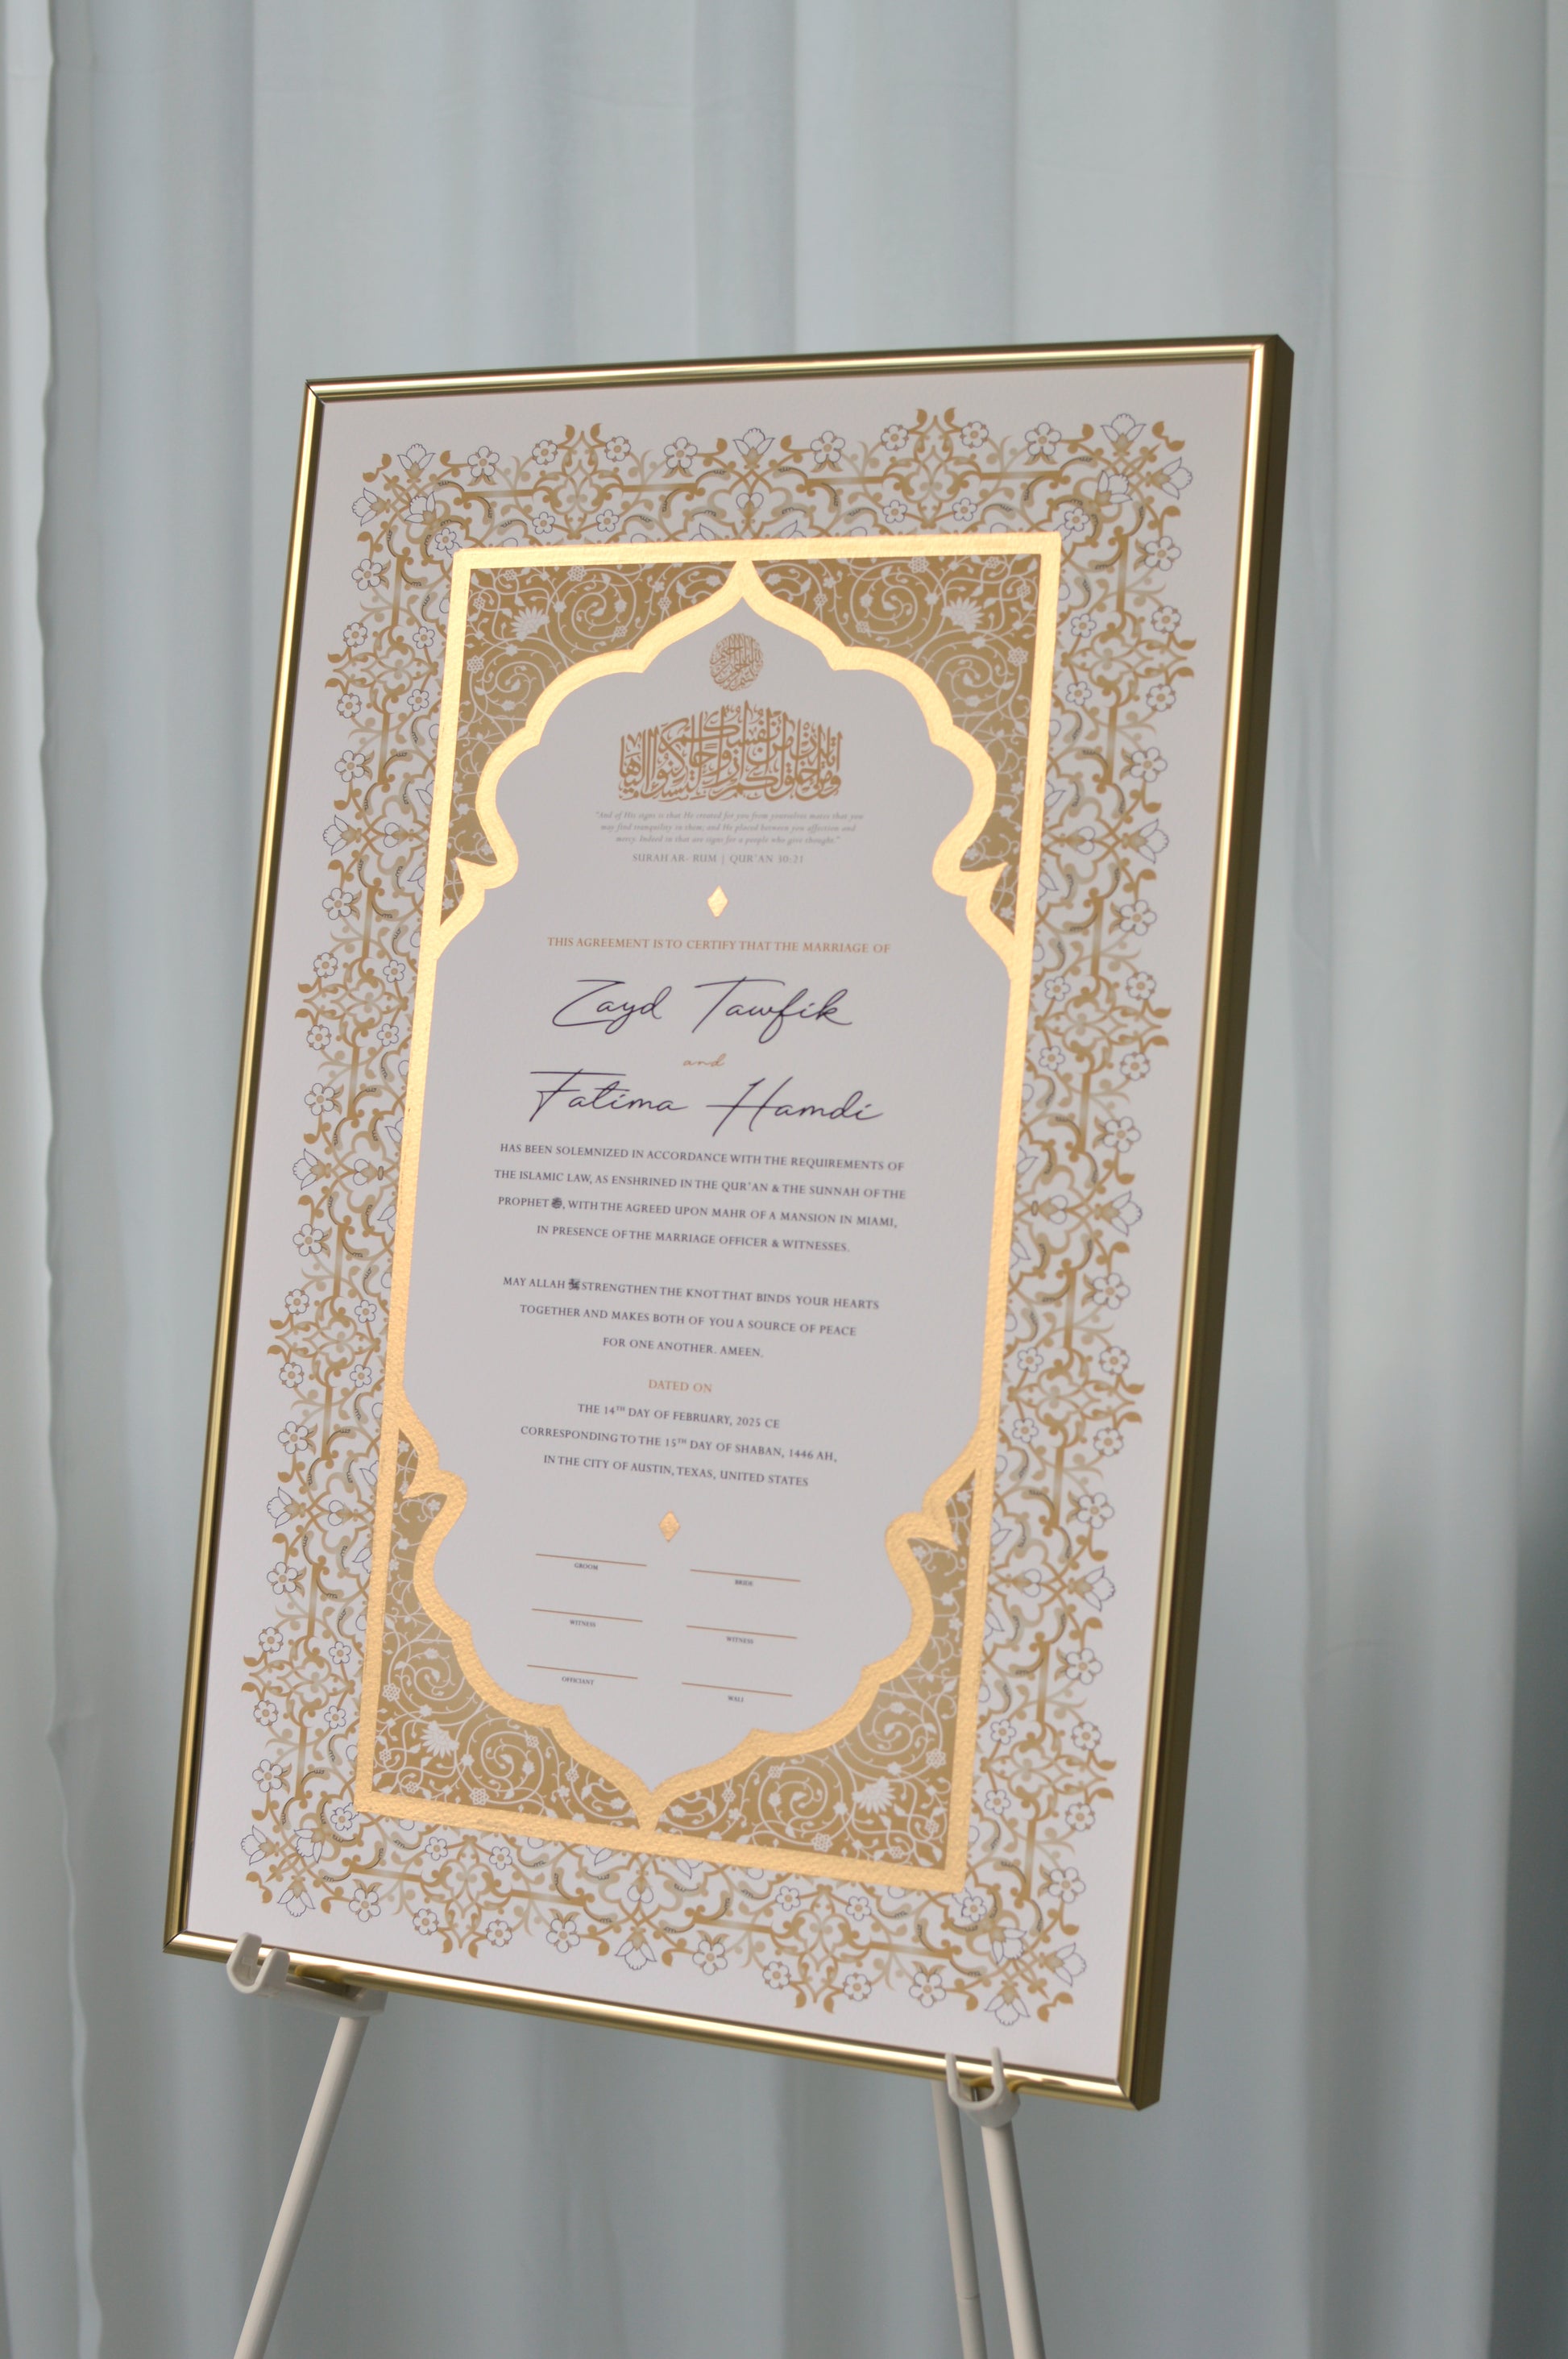 بسم الله الرحمن الرحيم
ومن آياته أن خلق لكم من أنفسكم أزواجا لتسكنوا إليها
"And of His signs is that He created for you from yourselves mates that you
may find tranquility in them; and He placed between you affection and
mercy. Indeed in that are signs for a people who give thought."
SURAH AR- RUM | QUR'AN 30:21
THIS AGREEMENT IS TO CERTIFY THAT THE MARRIAGE OF
Zayd Tawfik
and
Fatima Hamdi
HAS BEEN SOLEMNIZED IN ACCORDANCE WITH THE REQUIREMENTS OF
THE ISLAMIC LAW, AS ENSHRINED IN THE QUR'AN & THE SUNNAH OF THE
PROPHET ﷺ, WITH THE AGREED UPON MAHR OF A MANSION IN MIAMI,
IN PRESENCE OF THE MARRIAGE OFFICER & WITNESSES.
MAY ALLAH STRENGTHEN THE KNOT THAT BINDS YOUR HEARTS
TOGETHER AND MAKES BOTH OF YOU A SOURCE OF PEACE
FOR ONE ANOTHER. AMEEN.
DATED ON
THE 14TH DAY OF FEBRUARY, 2025 CE
CORRESPONDING TO THE 15TH DAY OF SHABAN, 1446 AH,
IN THE CITY OF AUSTIN, TEXAS, UNITED STATES
GROOM BRIDE
WITNESS WITNESS
OFFICIANT WALI